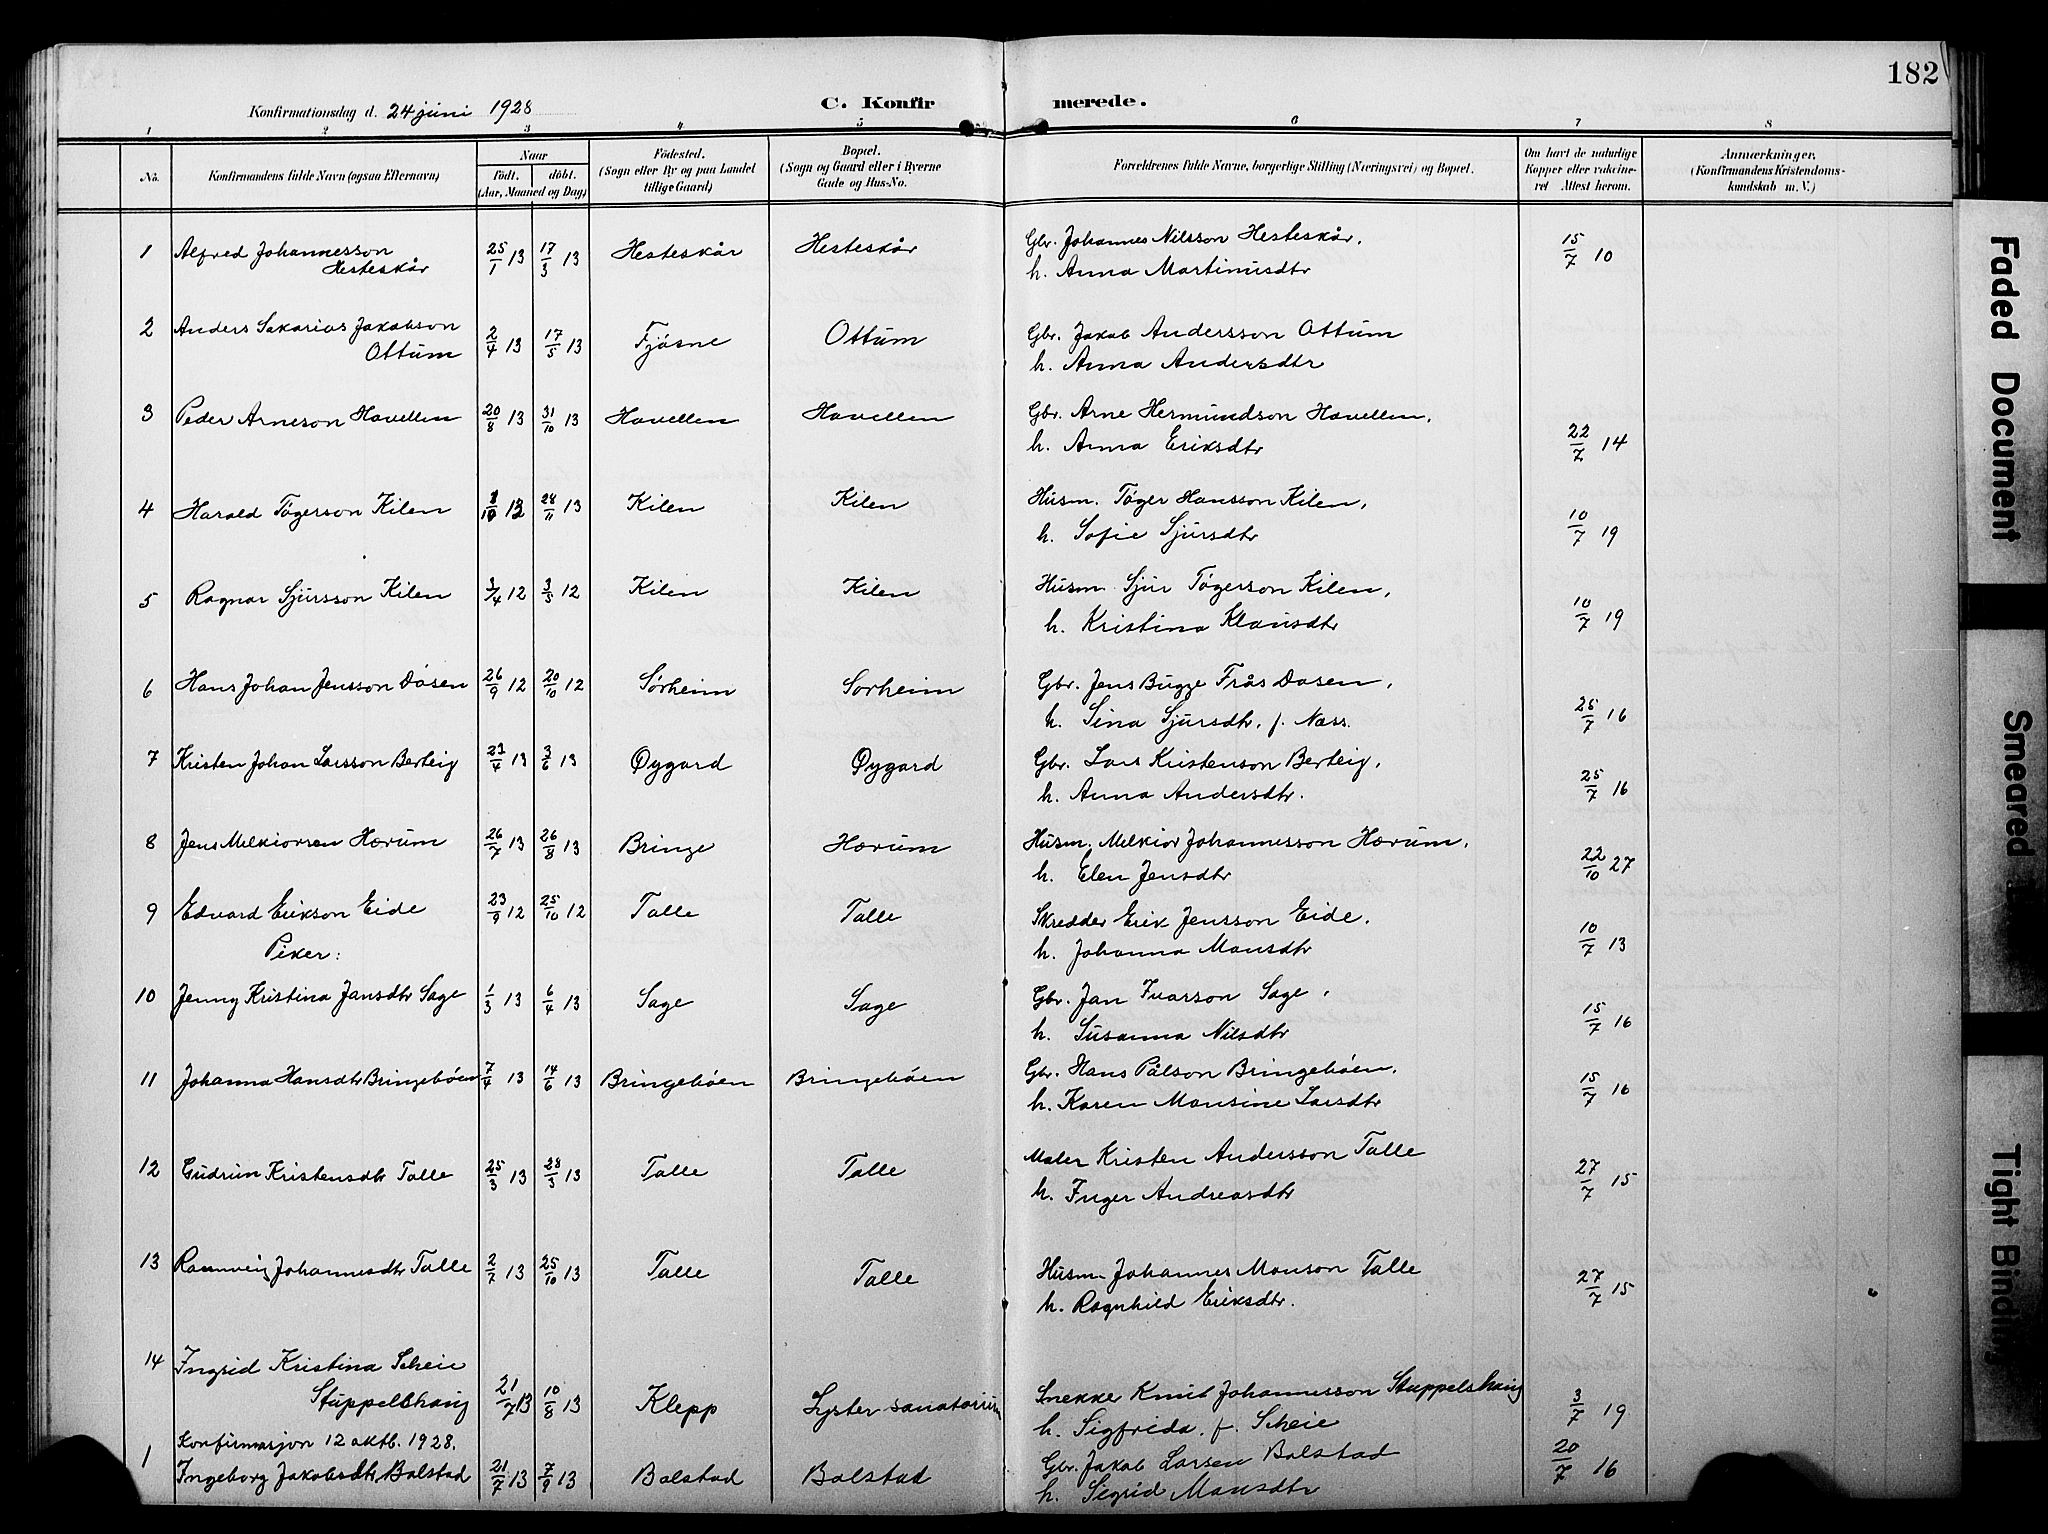 182
Konfirmationsdag d. 24 juni 1928
C. Konfirmerede.
1 2 3 4 5 6 7 8
No.
Konfirmandens fulde Navn (ogsaa Efternavn)
Naar
født. døbt.
(Aar, Maaned og Dag)
Fødested.
(Sogn eller By og paa Landet
tillige Gaard)
Bopæl.
(Sogn og Gaard eller i Byerne
Gade og Hus-No.
Forældrenes fulde Navne, borgerlige Stilling (Næringsvei) og Bopæl.
Om havt de naturlige
Kopper eller vakcine-
ret Attest herom.
Anmærkninger.
(Konfirmandens Kristendoms-
kundskab m. V.)
1 Alfred Johannesson Hesteskår 25/1 13 17/3 13 Hesteskår Hesteskår Gbr. Johannes Nilsson Hesteskår, 15/7 10
h. Anna Martinusdtr
2 Anders Sakarias Jakobson Ottum 2/4 13 17/5 13 Fjøsne Ottum Gbr. Jakob Andersson Ottum
h. Anna Andersdtr
3 Peder Arneson Havellen 20/8 13 31/10 13 Havellen Havellen Gbr. Arne Hermundson Havellen, 22/7 14
h. Anna Eriksdtr
4 Harald Tøgerson Kilen 28/11 13 Kilen Kilen Husm. Tøger Hansson Kilen, 10/7 19
h. Sofie Sjursdtr
5 Ragnar Sjursson Kilen 3/4 12 3/5 12 Kilen Kilen Husm. Sjur Tøgerson Kilen, 10/7 19
h. Kristina Klausdtr
6 Hans Johan Jensson Døsen 26/9 12 20/10 12 Sørheim Sørheim Gbr. Jens Bugge Frås Døsen, 25/7 16
h. Sina Sjursdtr, f. Næss.
7 Kristen Johan Larsson Berteig 23/4 13 3/6 13 Øygard Øygard Gbr. Lars Kristenson Berteig, 25/7 16
h. Anna Andersdtr.
8 Jens Melkiorsen Hærum 26/7 13 26/8 13 Bringe Hærum Husm. Melkior Johannesson Hærum, 22/10 27
h. Elen Jensdtr
9 Edvard Erikson Eide 23/9 12 25/10 12 Talle Talle Skredder Erik Jensson Eide, 10/7 13
h. Johanna Monsdtr
Piker:
10 Jenny Kristina Jansdtr Sage 1/3 13 6/4 13 Sage Sage Gbr. Jan Ivarson Sage, 15/7 16
h. Susanna Nilsdtr
11 Johanna Hansdtr Bringebøen 7/4 13 14/6 13 Bringebøen Bringebøen Gbr. Hans Pålson Bringebøen, 15/7 16
h. Karen Monsine Larsdtr
12 Gudrun Kristensdtr Talle 25/3 13 28/3 13 Talle Talle Maler Kristen Andersson Talle 27/7 15
h. Inger Andreasdtr
13 Rannveig Johannesdtr Talle 2/7 13 25/10 13 Talle Talle Husm. Johannes Monson Talle 27/7 15
h. Ragnhild Eriksdtr.
14 Ingrid Kristina Scheie Stuppelshaug 21/7 13 10/8 13 Klepp Lyster sanatorium Snekker Knut Johannesson Stuppelshaug 3/7 19
h. Sigfrida, f. Scheie
Konfirmasjon 12 oktb. 1928.
1 Ingeborg Jakobsdtr Bolstad 21/7 13 7/9 13 Bolstad Bolstad Gbr. Jakob Larsen Bolstad 20/7 16
h. Sigrid Monsdtr
Faded Document
Smeared
Tight Binding